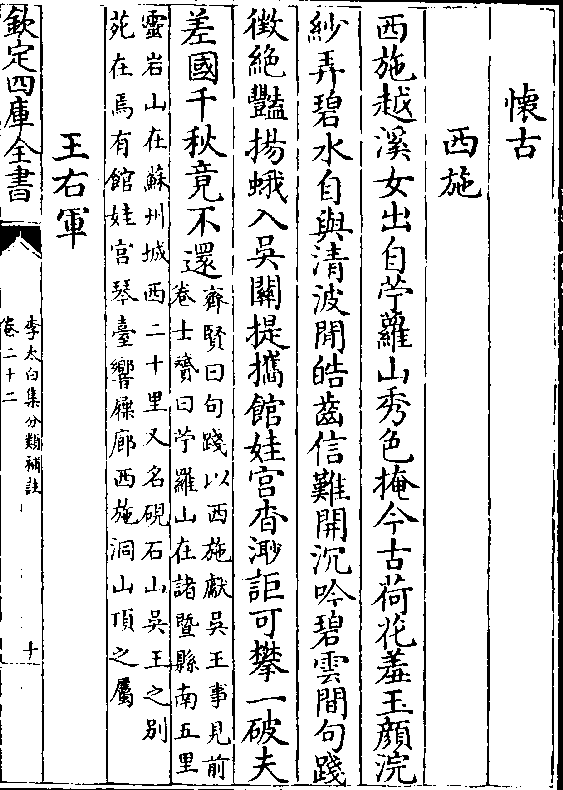 懷古
西施
西施越溪女出自苧蘿山秀色掩今古荷花羞玉顔浣
紗弄碧水自與清波閒皓齒信難開沉吟碧雲間句踐
徴絶豔揚蛾入吳關提攜館娃宫杳渺詎可攀一破夫
差國千秋竟不還
齊賢曰句踐以西施獻吳王事見前
卷士贇曰苧羅山在諸暨縣南五里
靈岩山在蘇州城西二十里又名硯石山吳王之别
苑在焉有館娃宫琴臺響屧廊西施洞山頂之屬
王右軍
欽定四庫全書
李太白集分類補註
卷二十二
十